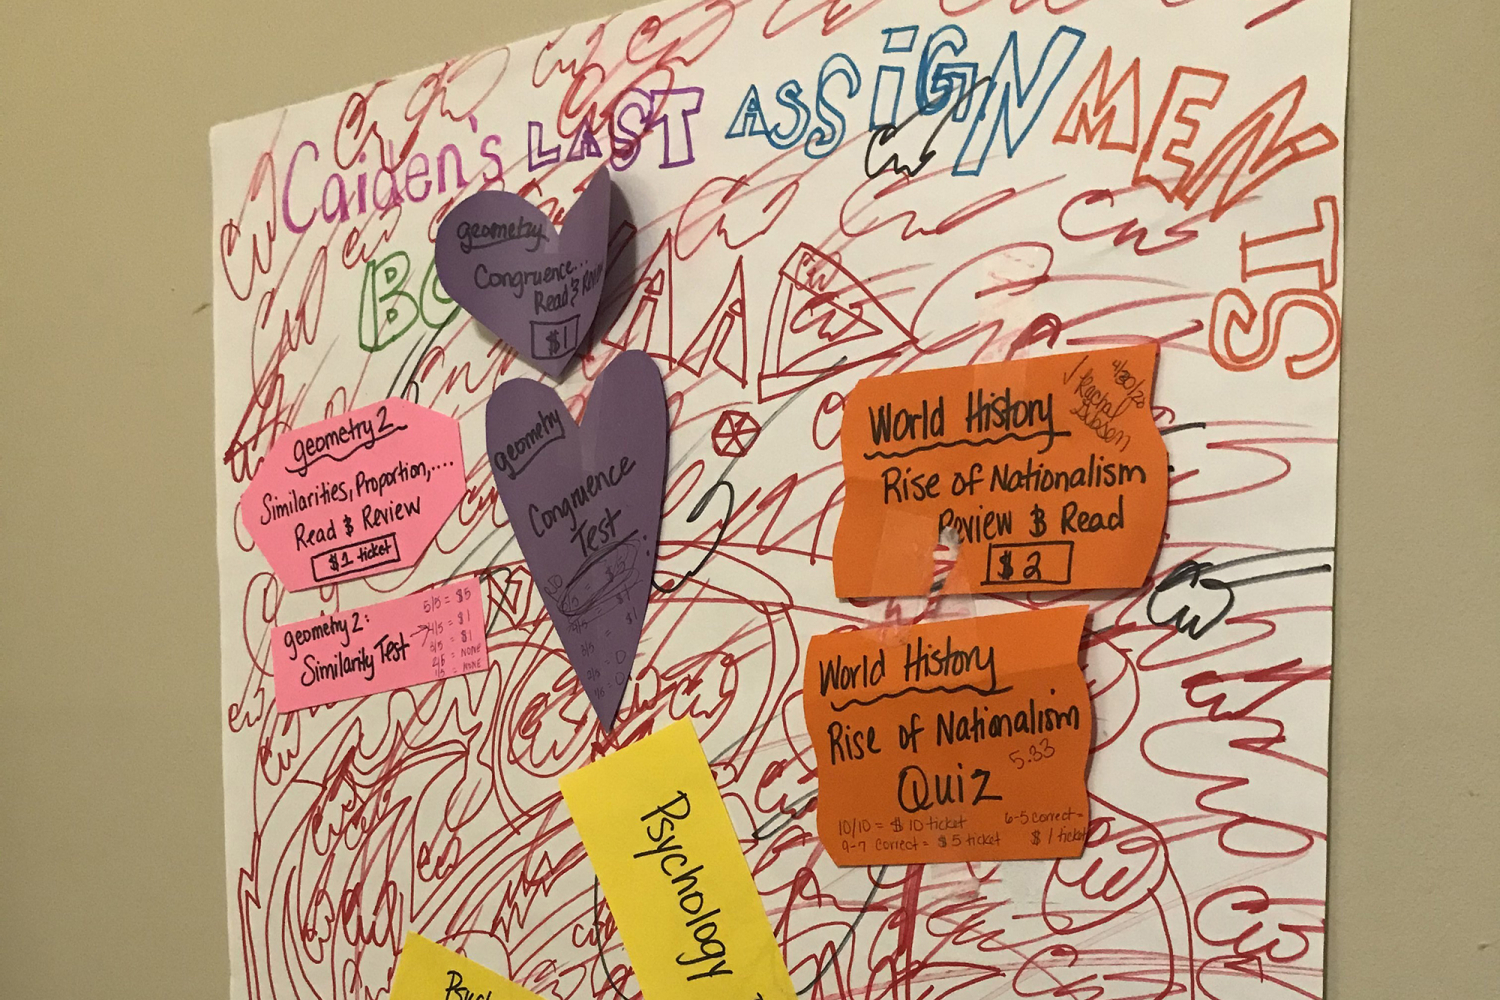 Caiden's LAST ASSIGNMENTS
BO
geometry
Congruence...
Read & Review
$1
geometry
Congruence
Test
geometry 2
Similarities, Proportion,....
Read & Review
$1 ticket
geometry 2:
Similarity Test
5/5 = $5
4/5 = $1
3/5 = $1
2/5 = NONE
1/5 = NONE
World History
✓ Rachel
Gibson
4/30/20
Rise of Nationalism
Review & Read
$2
World History
Rise of Nationalism
Quiz
5.33
10/10 = $10 ticket
9-7 correct = $5 ticket
6-5 correct =
$1 ticket
Psychology
Psych